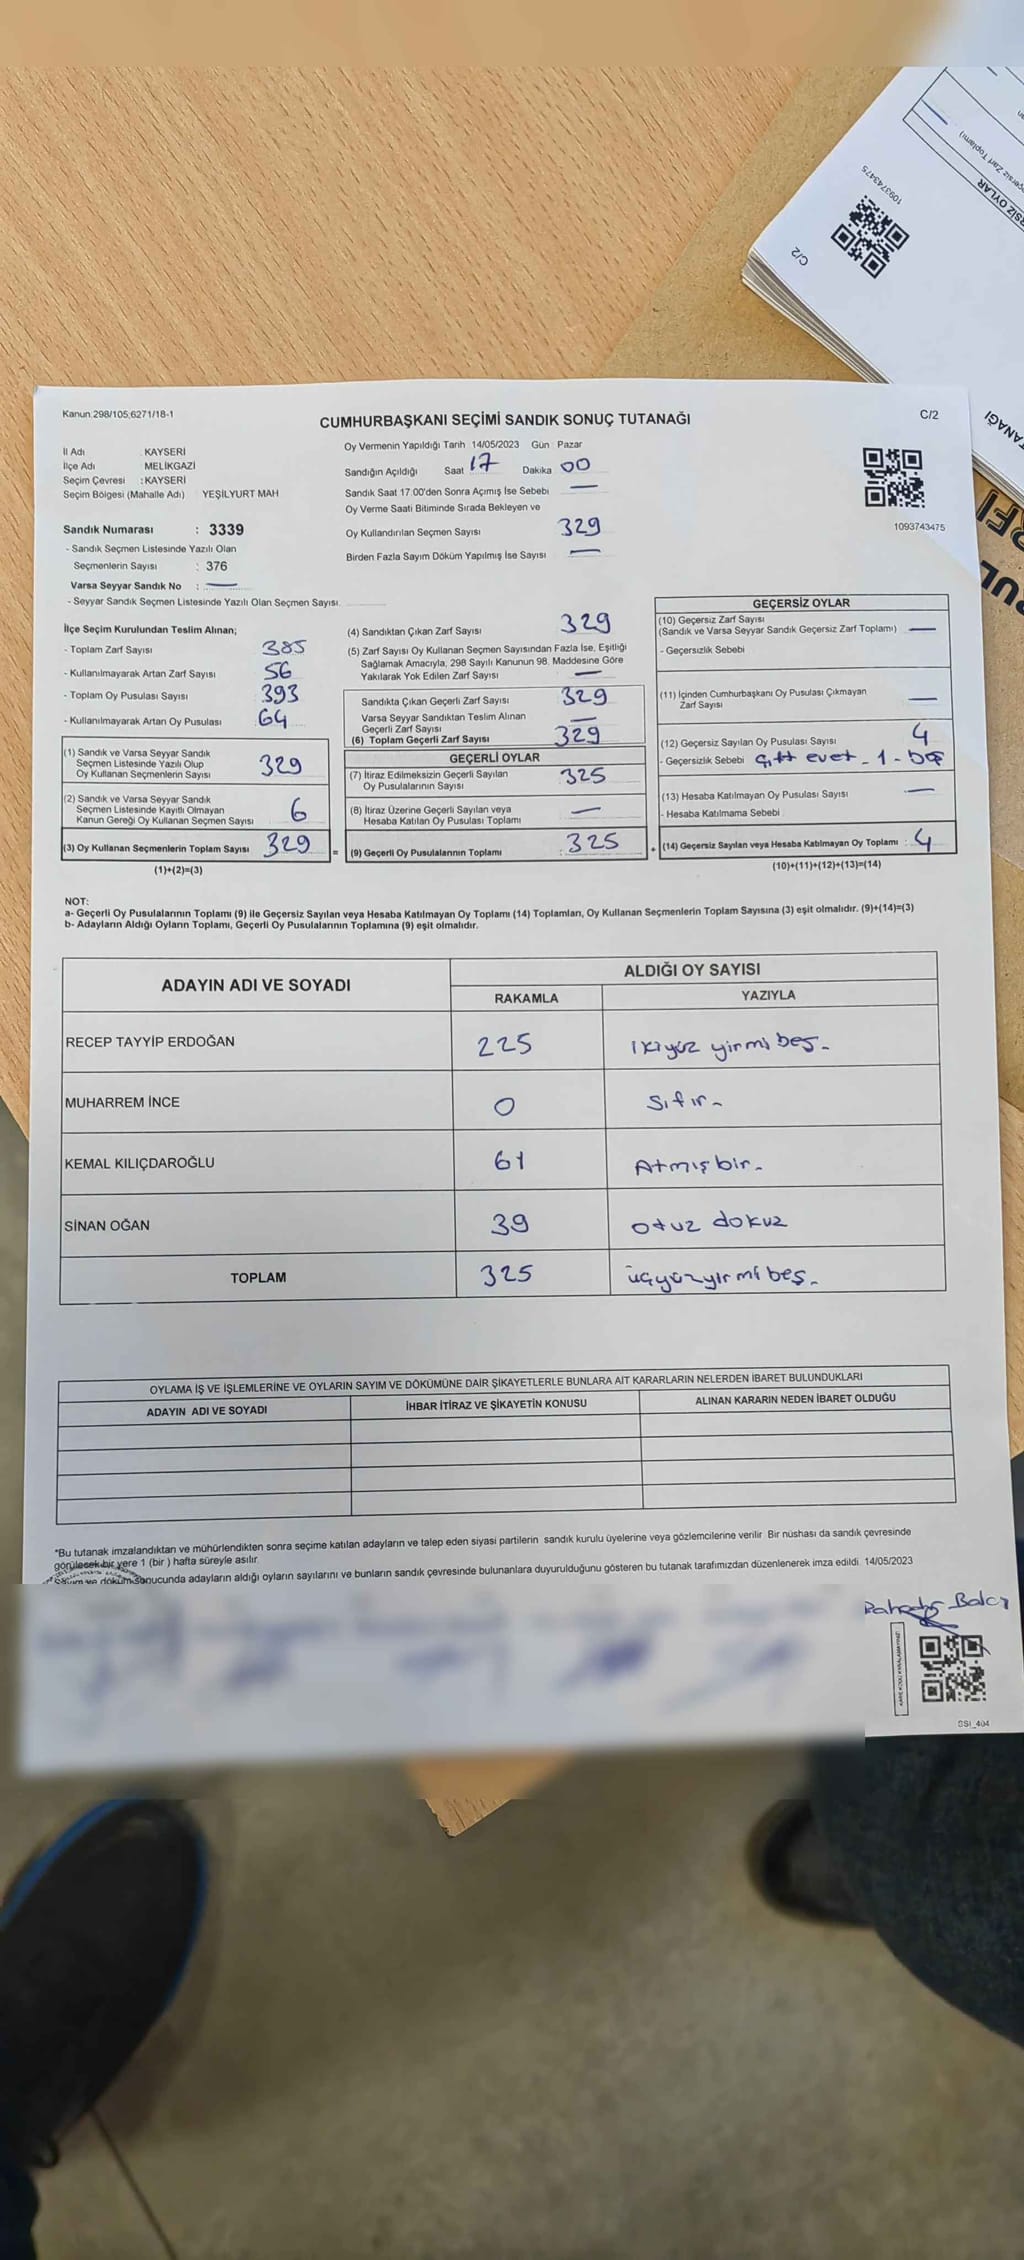 ersiz Zarf Toplamı)
RSİZ OYLAR
1093743475
C/2
Kanun:298/105;6271/18-1
CUMHURBAŞKANI SEÇİMİ SANDIK SONUÇ TUTANAĞI
C/2
İl Adı : KAYSERİ
İlçe Adı MELİKGAZİ
Seçim Çevresi : KAYSERİ
Seçim Bölgesi (Mahalle Adı) YEŞİLYURT MAH
Sandık Numarası : 3339
- Sandık Seçmen Listesinde Yazılı Olan
Seçmenlerin Sayısı : 376
Varsa Seyyar Sandık No : —
- Seyyar Sandık Seçmen Listesinde Yazılı Olan Seçmen Sayısı.
Oy Vermenin Yapıldığı Tarih 14/05/2023 Gün : Pazar
Sandığın Açıldığı Saat 17 Dakika 00
Sandık Saat 17.00'den Sonra Açımış İse Sebebi —
Oy Verme Saati Bitiminde Sırada Bekleyen ve
Oy Kullandırılan Seçmen Sayısı 329
Birden Fazla Sayım Döküm Yapılmış İse Sayısı —
1093743475
İlçe Seçim Kurulundan Teslim Alınan;
- Toplam Zarf Sayısı 385
- Kullanılmayarak Artan Zarf Sayısı 56
- Toplam Oy Pusulası Sayısı 393
- Kullanılmayarak Artan Oy Pusulası 64
(1) Sandık ve Varsa Seyyar Sandık
Seçmen Listesinde Yazılı Olup
Oy Kullanan Seçmenlerin Sayısı 329
(2) Sandık ve Varsa Seyyar Sandık
Seçmen Listesinde Kayıtlı Olmayan
Kanun Gereği Oy Kullanan Seçmen Sayısı 6
(3) Oy Kullanan Seçmenlerin Toplam Sayısı 329
(1)+(2)=(3)
(4) Sandıktan Çıkan Zarf Sayısı 329
(5) Zarf Sayısı Oy Kullanan Seçmen Sayısından Fazla İse, Eşitliği
Sağlamak Amacıyla, 298 Sayılı Kanunun 98. Maddesine Göre
Yakılarak Yok Edilen Zarf Sayısı —
Sandıkta Çıkan Geçerli Zarf Sayısı 329
Varsa Seyyar Sandıktan Teslim Alınan
Geçerli Zarf Sayısı —
(6) Toplam Geçerli Zarf Sayısı 329
GEÇERLİ OYLAR
(7) İtiraz Edilmeksizin Geçerli Sayılan
Oy Pusulalarının Sayısı 325
(8) İtiraz Üzerine Geçerli Sayılan veya
Hesaba Katılan Oy Pusulası Toplamı —
= (9) Geçerli Oy Pusulalarının Toplamı : 325
GEÇERSİZ OYLAR
(10) Geçersiz Zarf Sayısı
(Sandık ve Varsa Seyyar Sandık Geçersiz Zarf Toplamı) —
- Geçersizlik Sebebi
(11) İçinden Cumhurbaşkanı Oy Pusulası Çıkmayan
Zarf Sayısı —
(12) Geçersiz Sayılan Oy Pusulası Sayısı 4
- Geçersizlik Sebebi Çift evet - 1 - boş
(13) Hesaba Katılmayan Oy Pusulası Sayısı —
- Hesaba Katılmama Sebebi
+ (14) Geçersiz Sayılan veya Hesaba Katılmayan Oy Toplamı : 4
(10)+(11)+(12)+(13)=(14)
NOT:
a- Geçerli Oy Pusulalarının Toplamı (9) ile Geçersiz Sayılan veya Hesaba Katılmayan Oy Toplamı (14) Toplamları, Oy Kullanan Seçmenlerin Toplam Sayısına (3) eşit olmalıdır. (9)+(14)=(3)
b- Adayların Aldığı Oyların Toplamı, Geçerli Oy Pusulalarının Toplamına (9) eşit olmalıdır.
ADAYIN ADI VE SOYADI ALDIĞI OY SAYISI
RAKAMLA YAZIYLA
RECEP TAYYİP ERDOĞAN 225 ikiyüz yirmi beş -
MUHARREM İNCE 0 Sıfır -
KEMAL KILIÇDAROĞLU 61 Atmışbir -
SİNAN OĞAN 39 otuz dokuz
TOPLAM 325 üçyüzyirmi beş -
OYLAMA İŞ VE İŞLEMLERİNE VE OYLARIN SAYIM VE DÖKÜMÜNE DAİR ŞİKAYETLERLE BUNLARA AİT KARARLARIN NELERDEN İBARET BULUNDUKLARI
ADAYIN ADI VE SOYADI İHBAR İTİRAZ VE ŞİKAYETİN KONUSU ALINAN KARARIN NEDEN İBARET OLDUĞU
*Bu tutanak imzalandıktan ve mühürlendikten sonra seçime katılan adayların ve talep eden siyasi partilerin sandık kurulu üyelerine veya gözlemcilerine verilir Bir nüshası da sandık çevresinde
görülecek bir yere 1 (bir ) hafta süreyle asılır.
Sayım ve döküm sonucunda adayların aldığı oyların sayılarını ve bunların sandık çevresinde bulunanlara duyurulduğunu gösteren bu tutanak tarafımızdan düzenlenerek imza edildi. 14/05/2023
Balcı
SSI_404